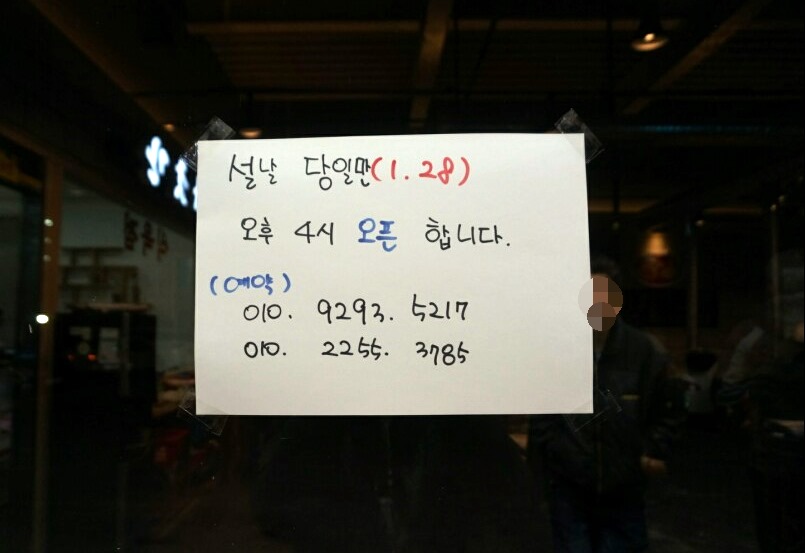 설날 당일만(1.28)
오후 4시 오픈 합니다.
(예약)
010. 9293. 5217
010. 2255. 3785